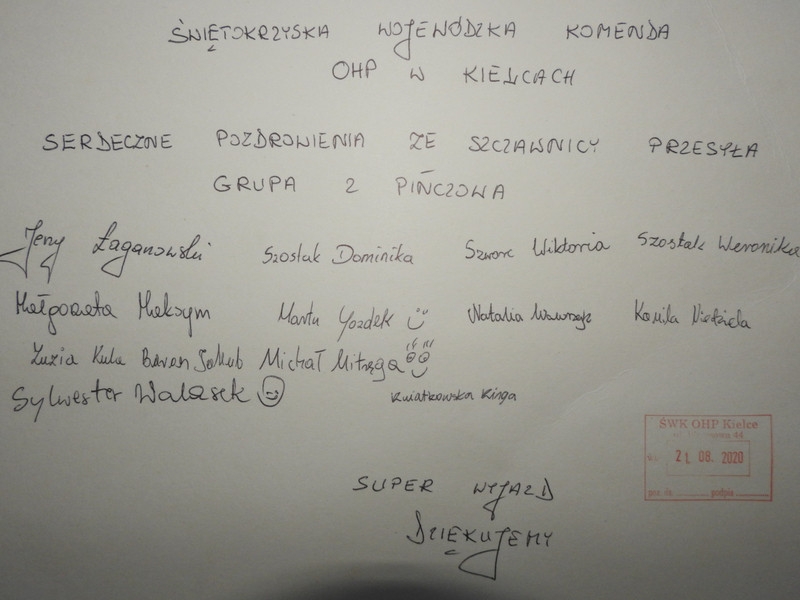 ŚWIĘTOKRZYSKA WOJEWÓDZKA KOMENDA
OHP W KIELCACH
SERDECZNE POZDROWIENIA ZE SZCZAWNICY PRZESYŁA
GRUPA Z PIŃCZOWA
Jerzy Łaganowski Szostak Dominika Szwarc Wiktoria Szostak Weronika
Małgorzata Maksym Marta Natalia Kamila Niedziela
Zuzia Kula Baran Jakub Michał Mitręga
Sylwester Walasek Kwiatkowska Kinga
ŚWK OHP Kielce
44
21. 08. 2020
podpis
SUPER WYJAZD
DZIĘKUJEMY